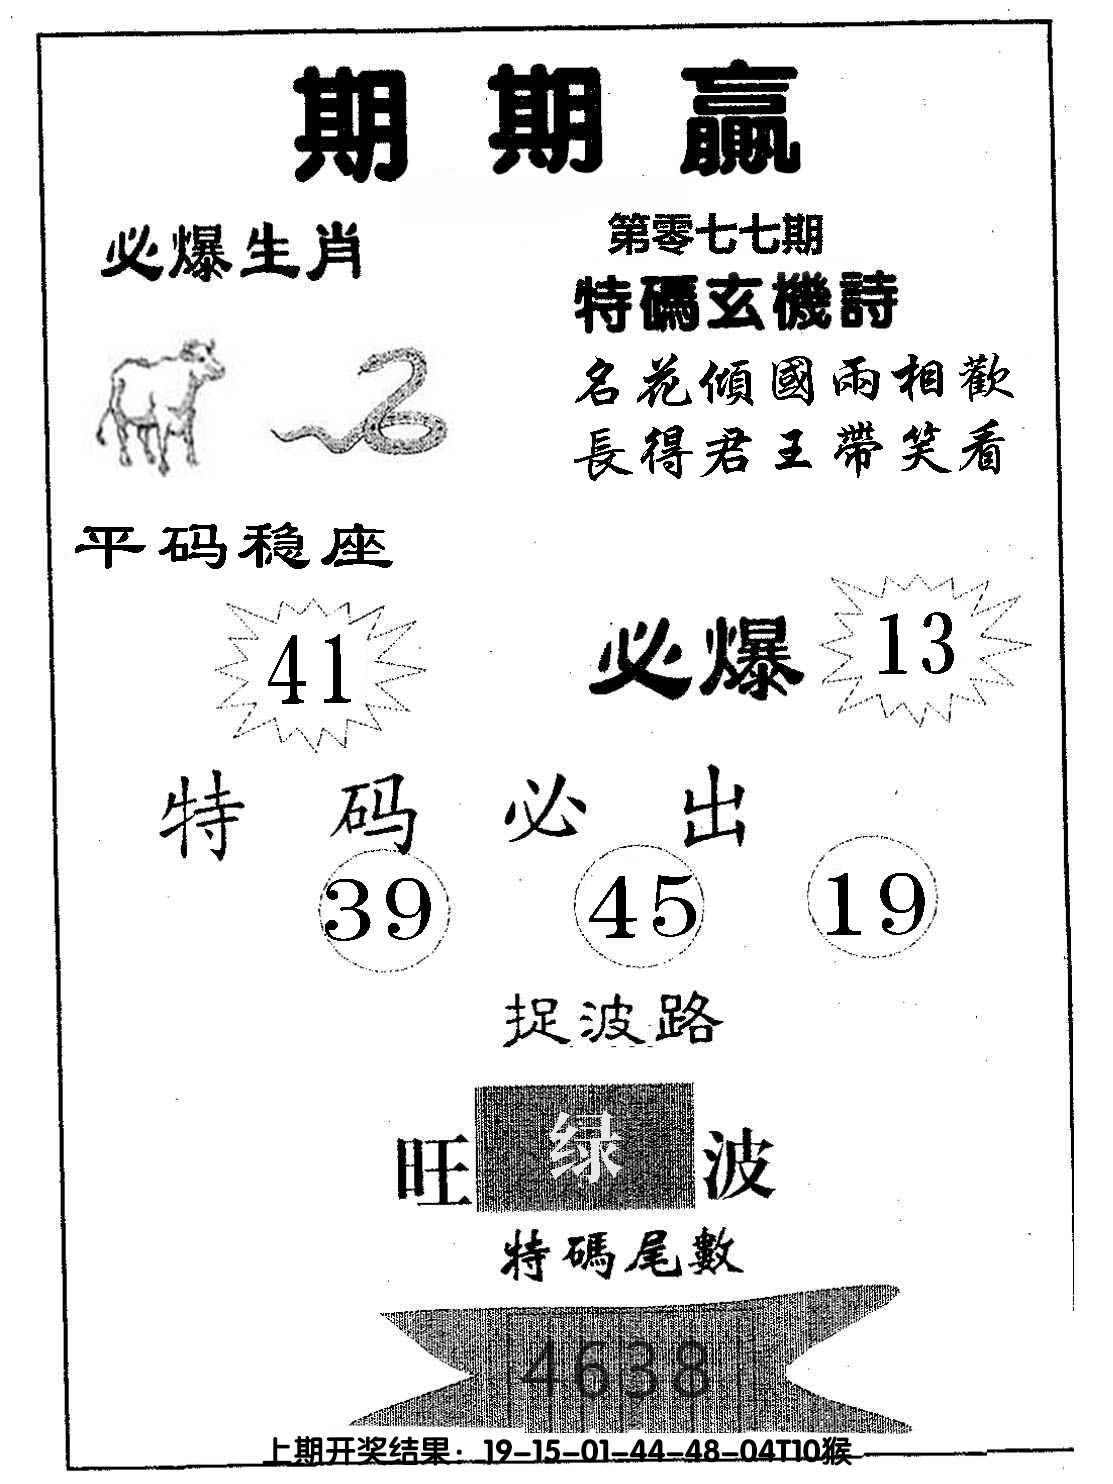 期期贏
必爆生肖
第零七七期
特碼玄機詩
名花傾國兩相歡
長得君王帶笑看
平码稳座
41
必爆 13
特码必出
39 45 19
捉波路
旺绿波
特碼尾數
4638
上期开奖结果：19-15-01-44-48-04T10猴